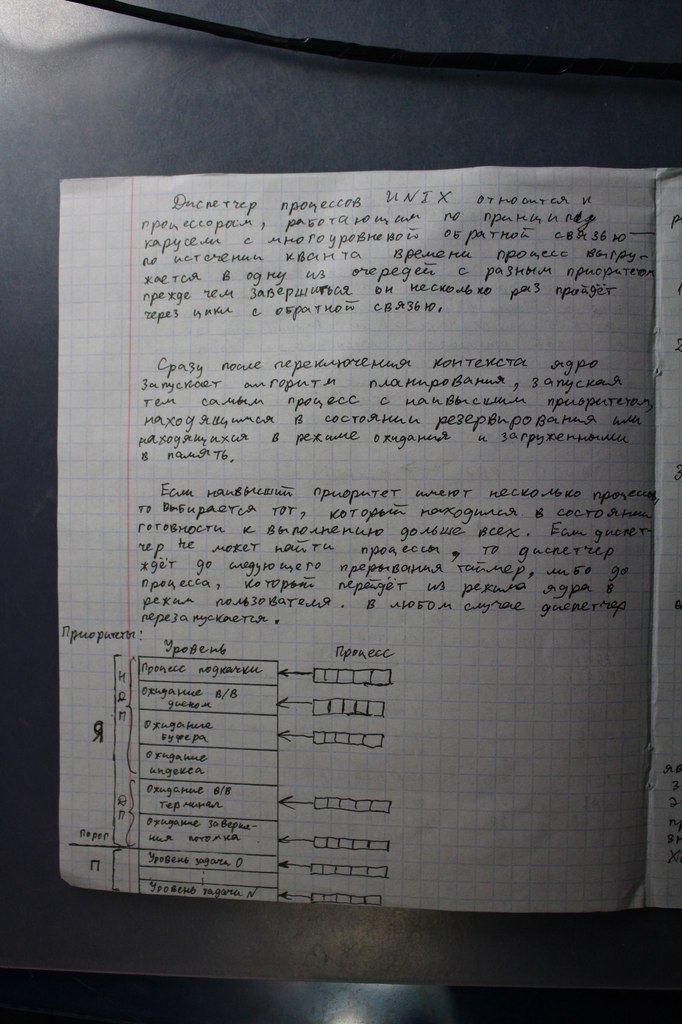 Диспетчер процессов UNIX относится к
процессорам, работающим по принципу
карусели с многоуровневой обратной связью —
по истечении кванта времени процесс выгру-
жается в одну из очередей с разным приоритетом
прежде чем завершиться он несколько раз пройдёт
через цикл с обратной связью.
Сразу после переключения контекста ядро
запускает алгоритм планирования, запуская
тем самым процесс с наивысшим приоритетом,
находящимся в состоянии резервирования или
находящихся в режиме ожидания и загруженными
в память.
Если наивысший приоритет имеют несколько процессов,
то выбирается тот, который находился в состоянии
готовности к выполнению дольше всех. Если диспет-
чер не может найти процессы, то диспетчер
ждёт до следующего прерывания таймер, либо до
процесса, который перейдёт из режима ядра в
режим пользователя. В любом случае диспетчер
перезапускается.
Приоритеты:
Уровень Процесс
Процесс подкачки
Ожидание В/В
диском
Ожидание
буфера
Ожидание
индекса
Ожидание В/В
терминал
Ожидание заверше-
ния потомка
Уровень задачи 0
Уровень задачи N
Я
НДП
ДП
Порог
П